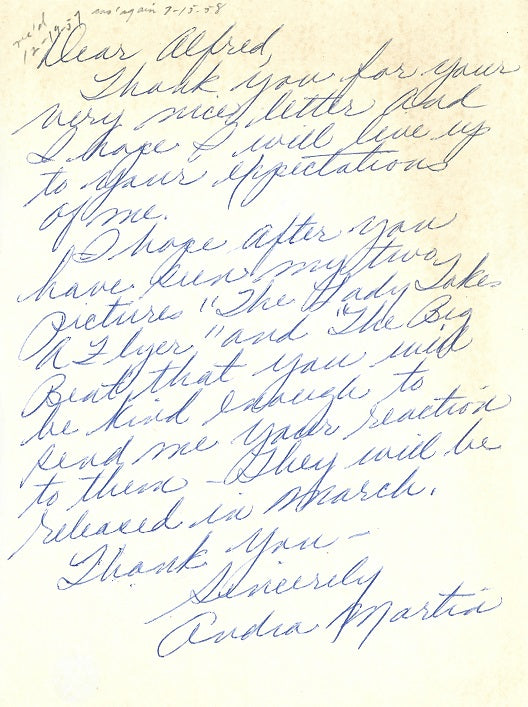 rec'd 12-19-57
ans' again 9-15-58
Dear Alfred,
Thank you for your
very nice letter and
I hope I will live up
to your expectations
of me.
I hope after you
have seen my two
pictures "The Lady Takes
A Flyer" and "The Big
Beat" that you will
be kind enough to
send me your reaction
to them - They will be
released in March.
Thank you -
Sincerely
Andra Martin